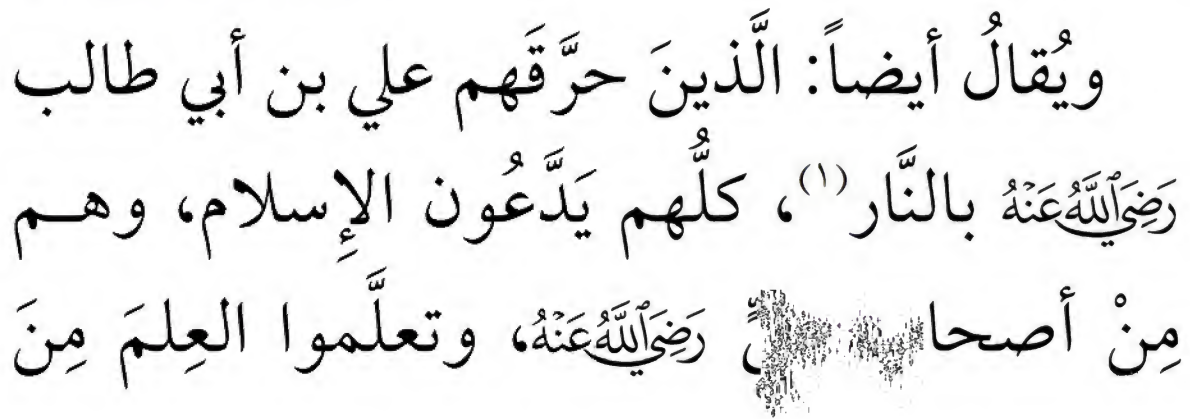 ويُقالُ أيضاً: الَّذينَ حرَّقَهم علي بن أبي طالب
رَضِيَ اللَّهُ عَنْهُ بالنَّار (١)، كلُّهم يَدَّعُون الإِسلام، وهم
مِنْ رَضِيَ اللَّهُ عَنْهُ، وتعلَّموا العِلمَ مِنَ